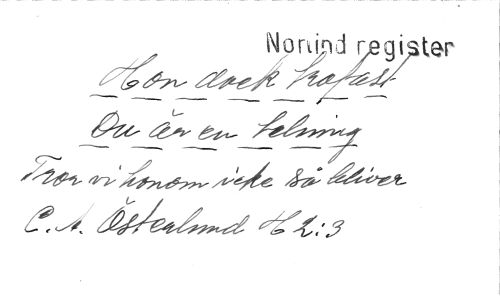 Nonind register
Hon dock trofast
Du är en
Tror vi honom icke så bliver
C. A. Österlund H 2:3